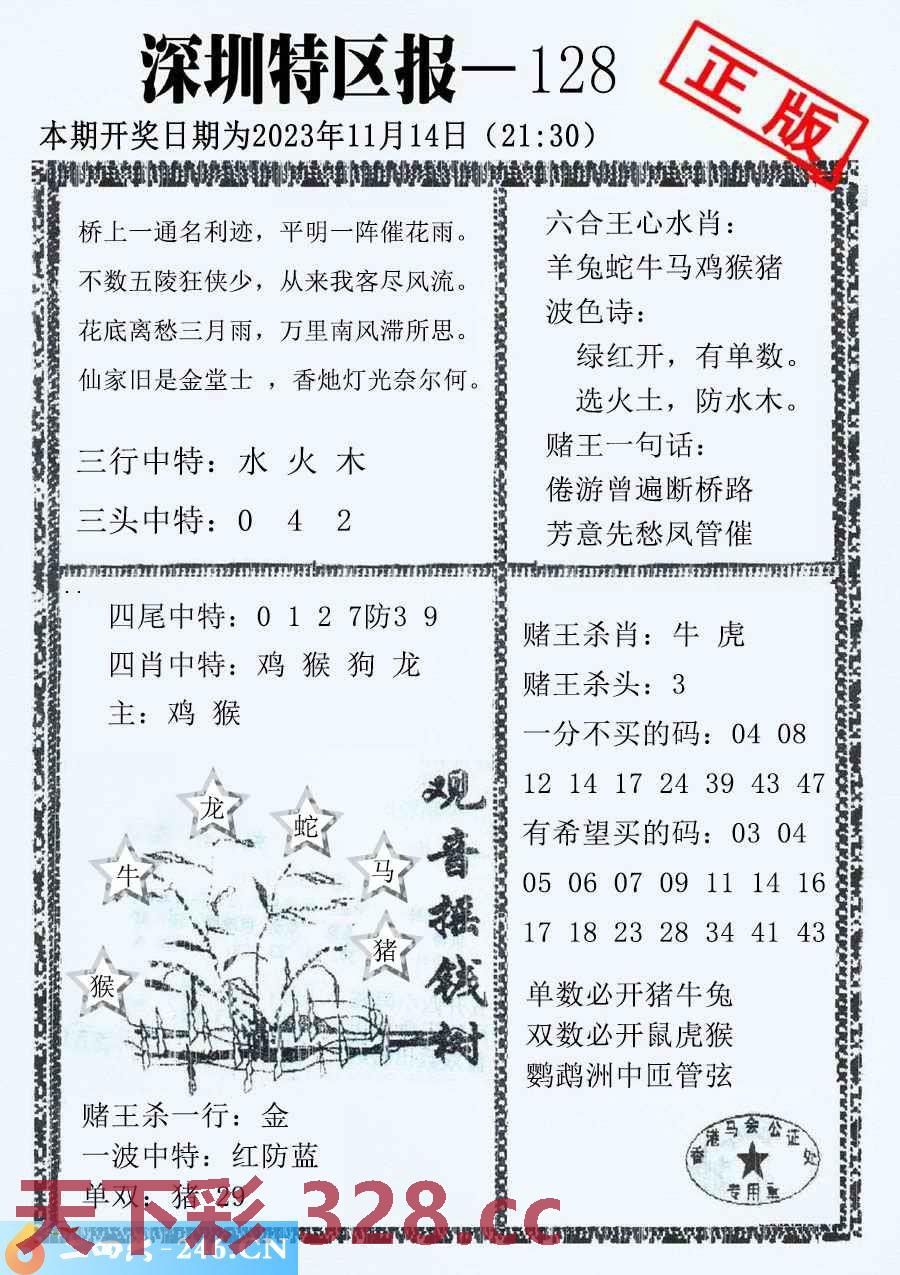 深圳特区报—128
正版
本期开奖日期为2023年11月14日（21:30）
桥上一通名利迹，平明一阵催花雨。
不数五陵狂侠少，从来我客尽风流。
花底离愁三月雨，万里南风滞所思。
仙家旧是金堂士 ，香灺灯光奈尔何。
三行中特：水 火 木
三头中特：0 4 2
六合王心水肖：
羊兔蛇牛马鸡猴猪
波色诗：
绿红开，有单数。
选火土，防水木。
赌王一句话：
倦游曾遍断桥路
芳意先愁凤管催
四尾中特：0 1 2 7防3 9
四肖中特：鸡 猴 狗 龙
主：鸡 猴
龙
蛇
牛
马
猪
猴
观音摇钱树
赌王杀一行：金
一波中特：红防蓝
单双：猪 29
赌王杀肖：牛 虎
赌王杀头：3
一分不买的码：04 08
12 14 17 24 39 43 47
有希望买的码：03 04
05 06 07 09 11 14 16
17 18 23 28 34 41 43
单数必开猪牛兔
双数必开鼠虎猴
鹦鹉洲中匝管弦
香港马会公证处
专用章
天下彩 328.cc
-246.CN